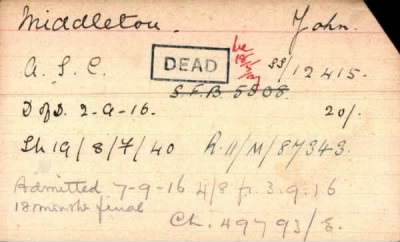 Middleton. John.
A.S.C. DEAD SS/12415.
S.F.B. 5808.
D of D. 2-9-16. 20/-
Sh 19/8/7/40 R.11/M/87343.
Admitted 7-9-16 4/8 fr. 3.9.16
18 months final
Ch. 49793/E.